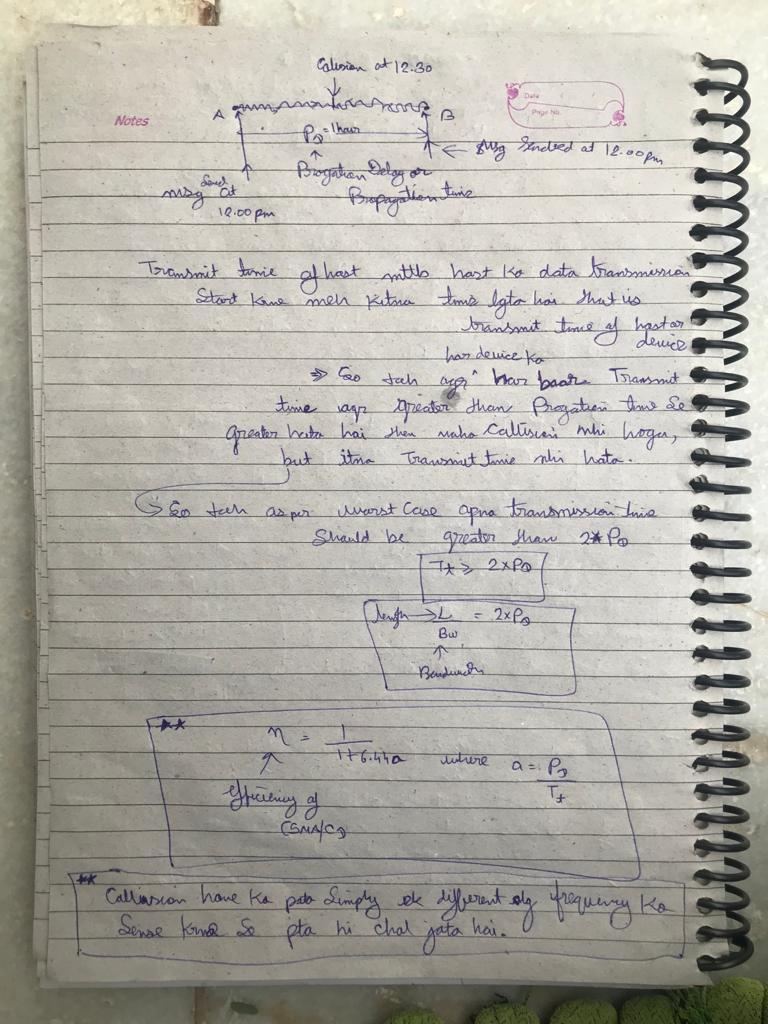 Collision at 12.30
Notes
Date
Page No.
A
B
PD = 1 hour
Msg Sended at 12.00 pm
Progation Delay or
Propagation time
Send
msg at
12.00 pm
Transmit time of host mtlb host ka data transmission
Start krne meh kitna time lgta hai that is
transmit time of host or
device
har device ka
⇒ So toh agr ^ har baar Transmit
time agr greater than Progation time se
greater hota hai then waha Collision nhi hoga,
but itna Transmit time nhi hota.
So toh as per worst Case apna transmission time
Should be greater than 2*PD
Tt ≥ 2×PD
length → L/BW = 2×PD
↑
Bandwidth
**
η = 1/(1+6.44a) where a = PD/Tt
efficiency of
CSMA/CD
**
Collision hone ka pata Simply ek different frequency ko
Sense krne se pta hi chal jata hai.